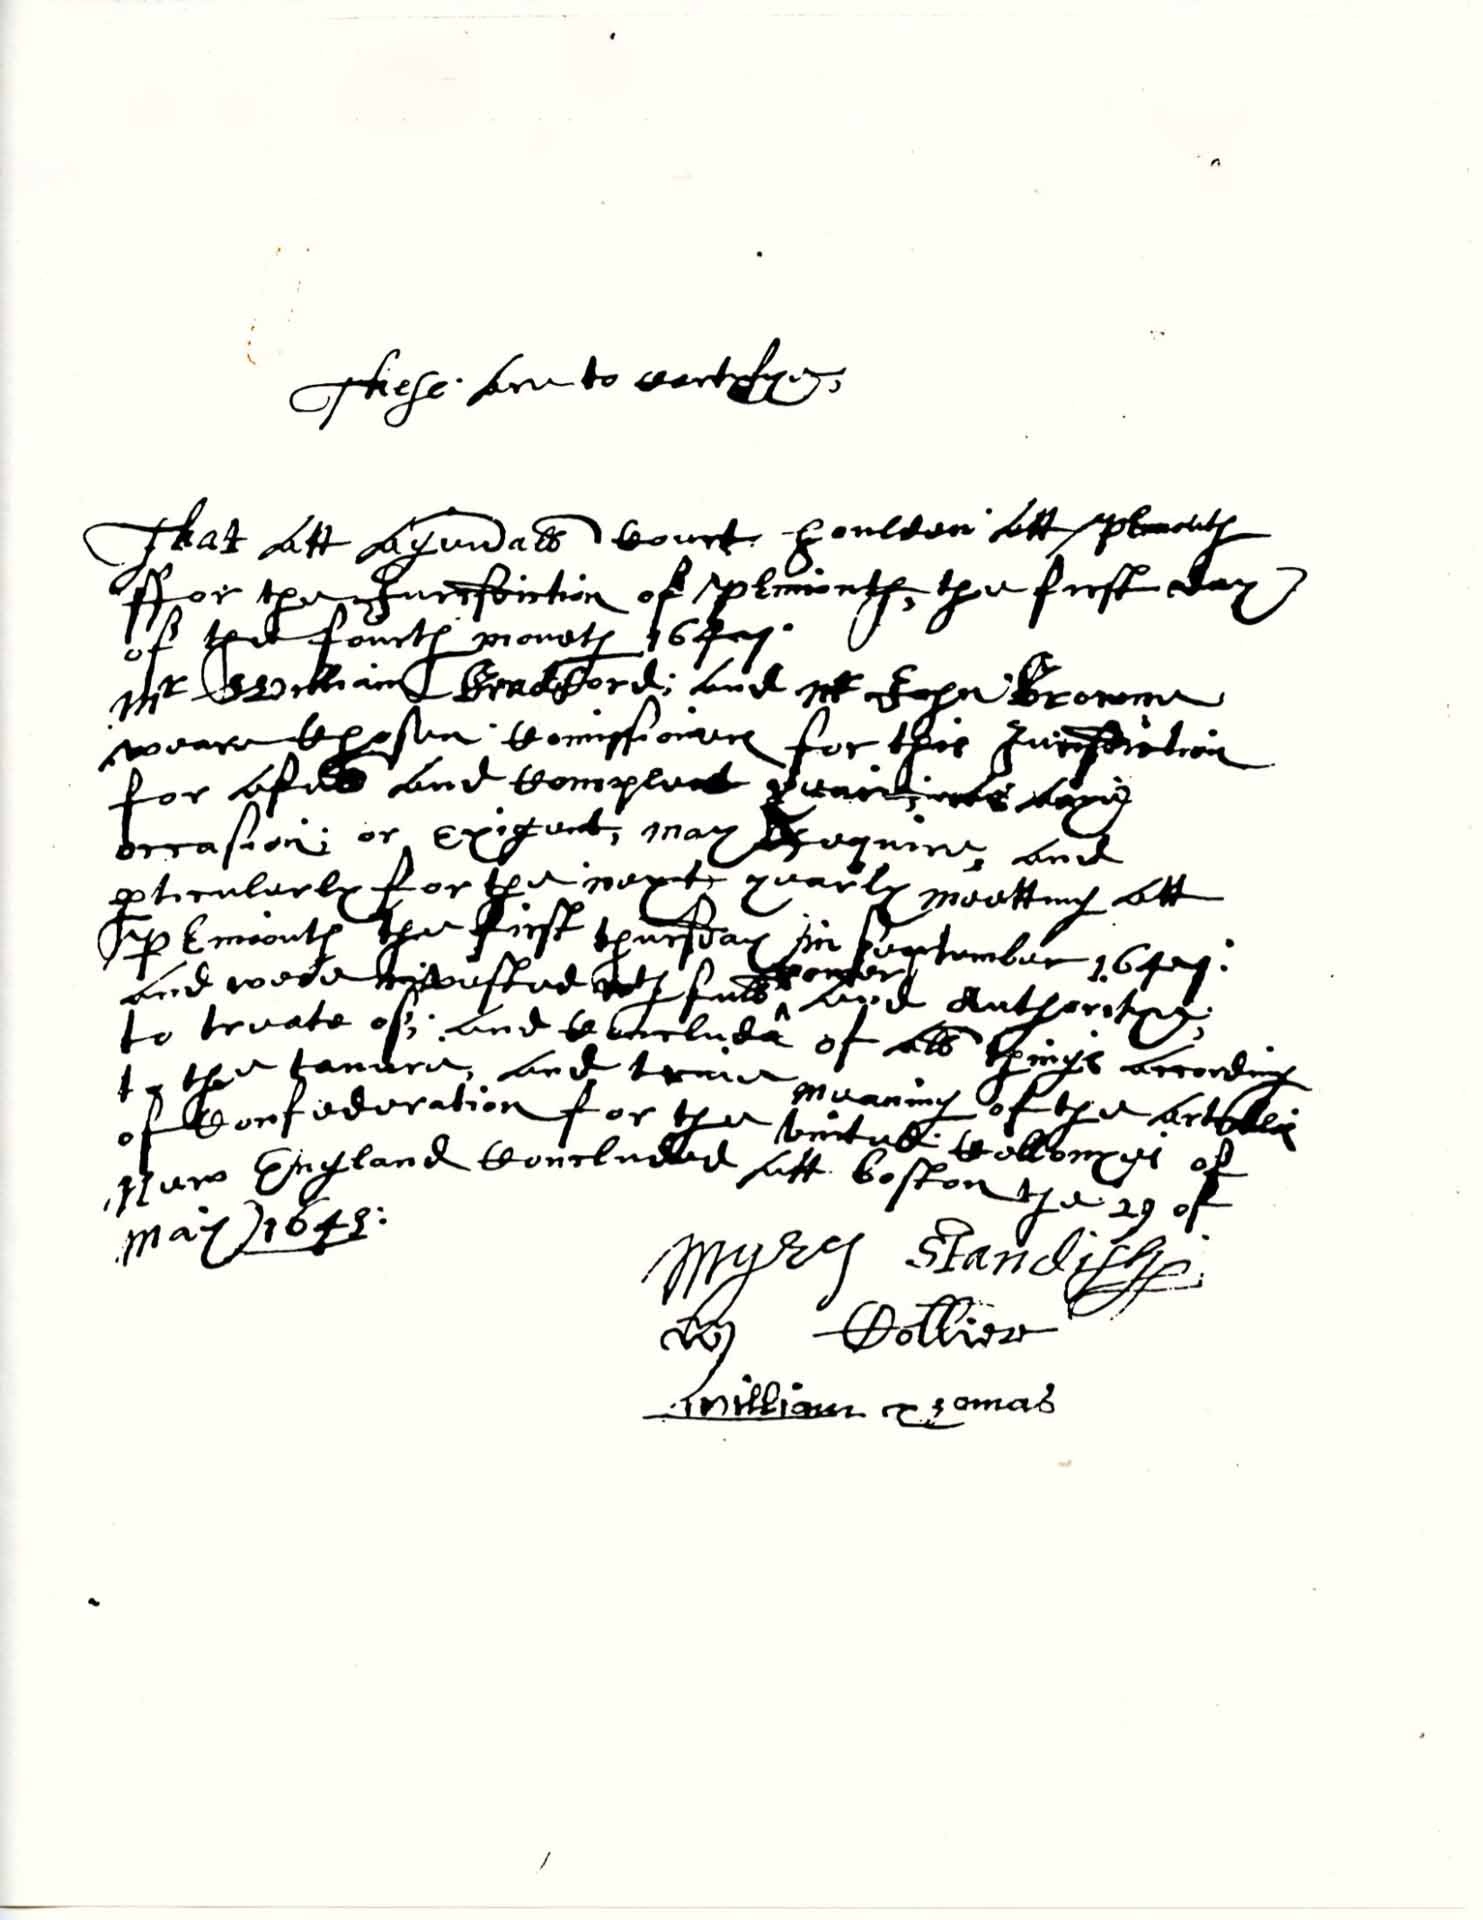 These are to certifye;
That att a generall Court houlden att Plimouth
ffor the Jurisdiction of Plimouth, the first day
of the fourth moneth 1647.
Mr William Bradford; and Mr John Browne
weare chosen Comissioners for this Jurisdiction
for a full and compleat yeair; as any
occasion; or exigent, may Require, and
pticularly for the next yearly meetting att
Plimouth the first thursday in September 1647:
and were invested wth full power and Authoritye;
to treate of; and conclude of all things according
to the tenure, and trwe meaning of the Artclis
of Confederation for the vnited Collonyes of
New England Concluded att boston the 29 of
may 1643:
Myles Standish
Wm Collier
William Thomas